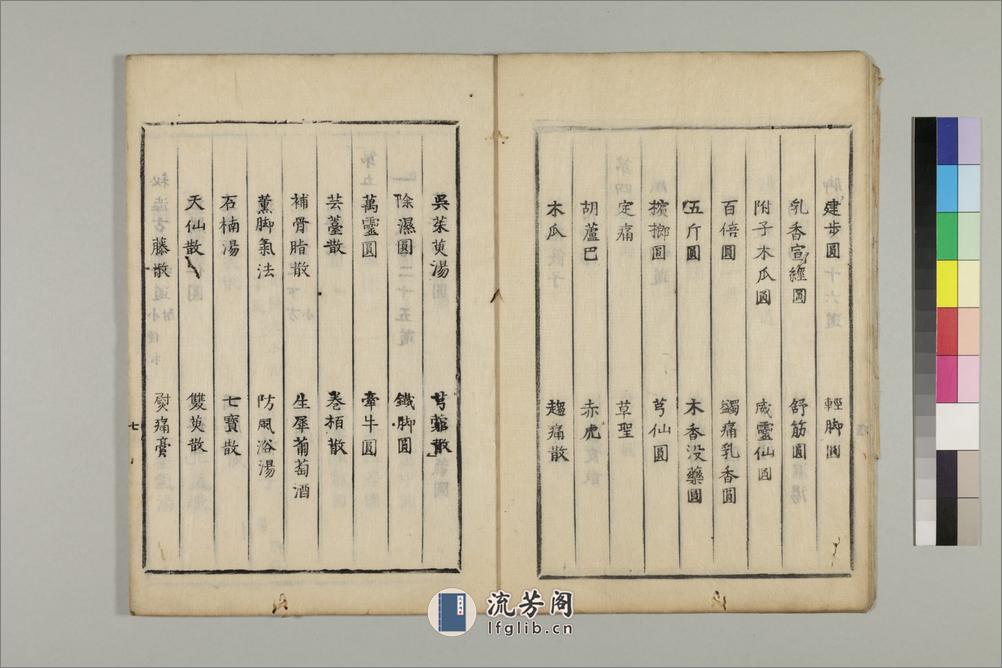 建步圓 輕脚圓
乳香宣經圓 舒筋圓
附子木瓜圓 威靈仙圓
百倍圓 蠲痛乳香圓
五斤圓 木香没藥圓
檳榔圓 芎仙圓
定痛 草聖
胡蘆巴 赤虎
木瓜 趂痛散
吳茱萸湯 芎散
除濕圓 鐵脚圓
萬靈圓 牽牛圓
芸薹散 卷栢散
補骨脂散 生犀葡萄酒
薫脚氣法 防風浴湯
石楠湯 七寶散
天仙散 雙萸散
藤散 熨痛膏
七
流芳阁
lfglib.cn